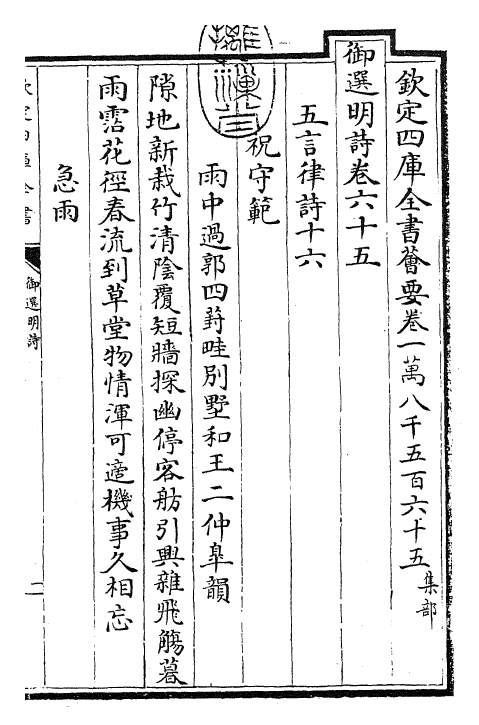 欽定四庫全書薈要卷一萬八千五百六十五集部
御選明詩卷六十五
五言律詩十六
祝守範
雨中過郭四葑畦別墅和王二仲臯韻
隙地新栽竹清陰覆短牆探幽停客舫引興雜飛觴暮
雨霑花徑春流到草堂物情渾可適機事久相忘
急雨
御選明詩